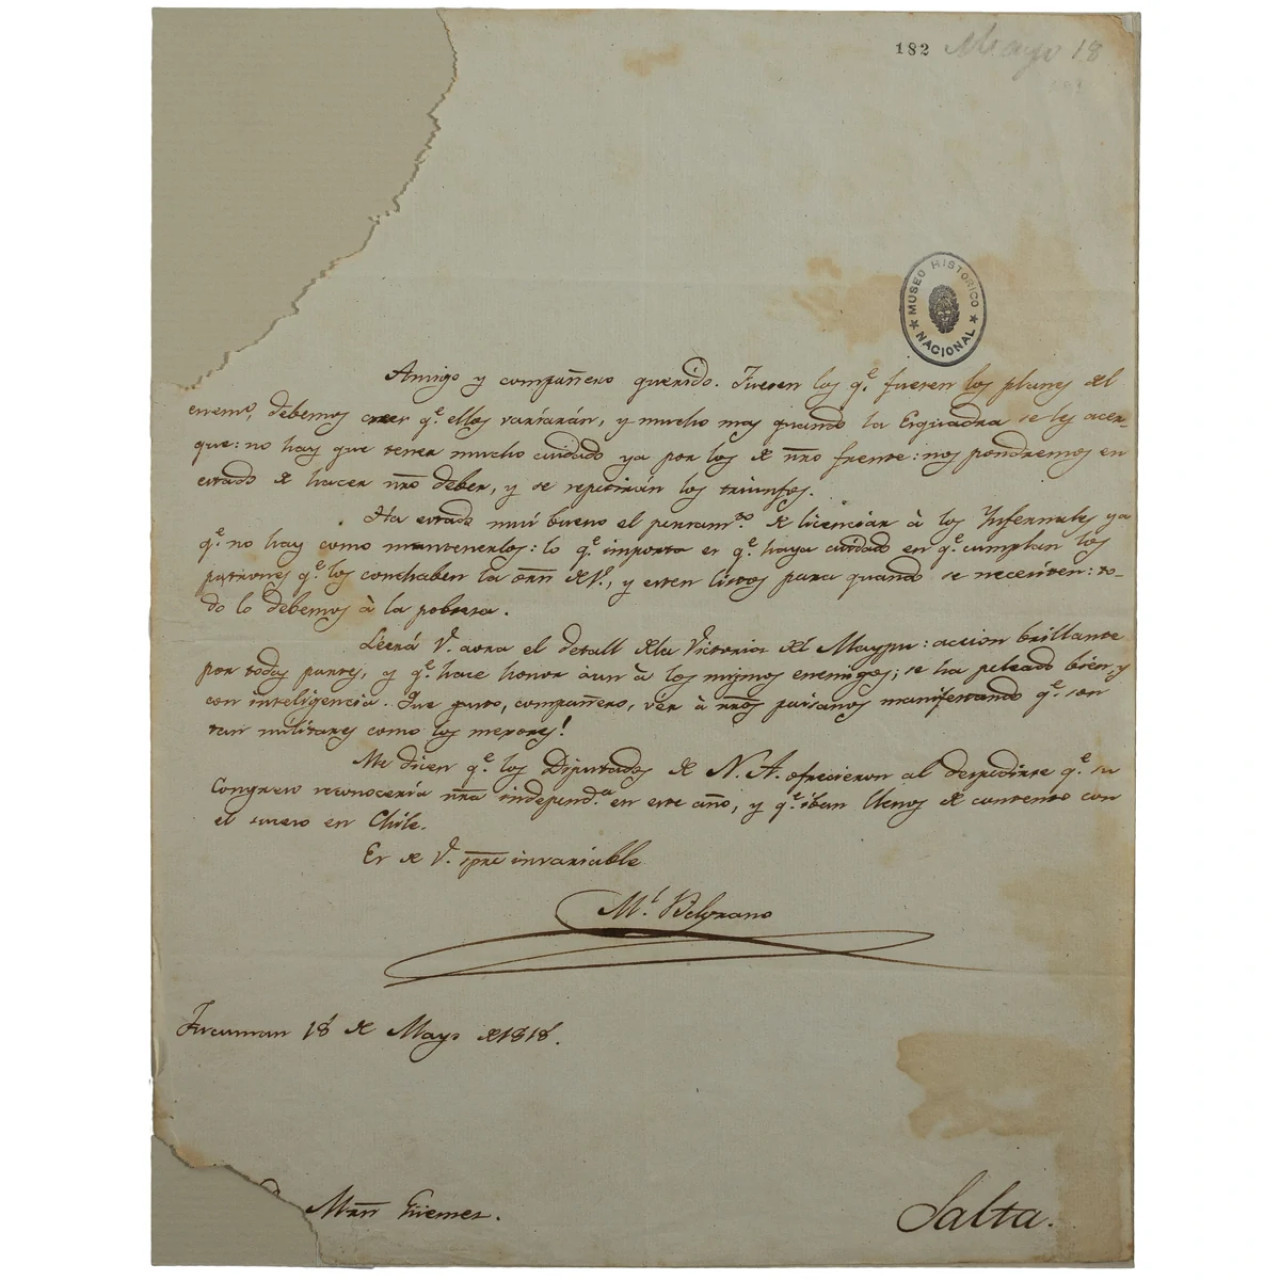 182 Mayo 18
MUSEO HISTORICO
NACIONAL
Amigo y compañero querido. Fuesen los q.e fuesen los planes del
enem.o, debemos creer q.e ellos variarán, y mucho mas quando la Esquadra se les acer-
que: no hay que tener mucho cuidado ya por los de nro frente: nos pondremos en
estado de hacer nro deber, y se repetirán los triunfos.
Ha estado mui bueno el pensam.to de licenciar à los Infernales ya
q.e no hay como mantenerlos: lo q.e importa es q.e haya cuidado en q.e cumplan los
patrones q.e los conchaben la orn de V., y esten listos para quando se necesiten: to-
do lo debemos à la pobresa.
Léerá V. aora el detall dela Victoria del Maypu: accion brillante
por todas partes, y q.e hace honor aun à los mismos enemigos; se ha peleado bien, y
con inteligencia. Que gusto, compañero, vér à nros paisanos manifestando q.e son
tan militares como los mejores!
Me dicen q.e los Diputados de N. A. ofrecieron al despedirse q.e su
Congreso reconocería nra independ.a en este año, y q.e iban llenos de contento con
el suceso en Chile.
Es de V. spre invariable
M.l Belgrano
Tucuman 18 de Mayo de 1818.
Mtn Güemes.
Salta.